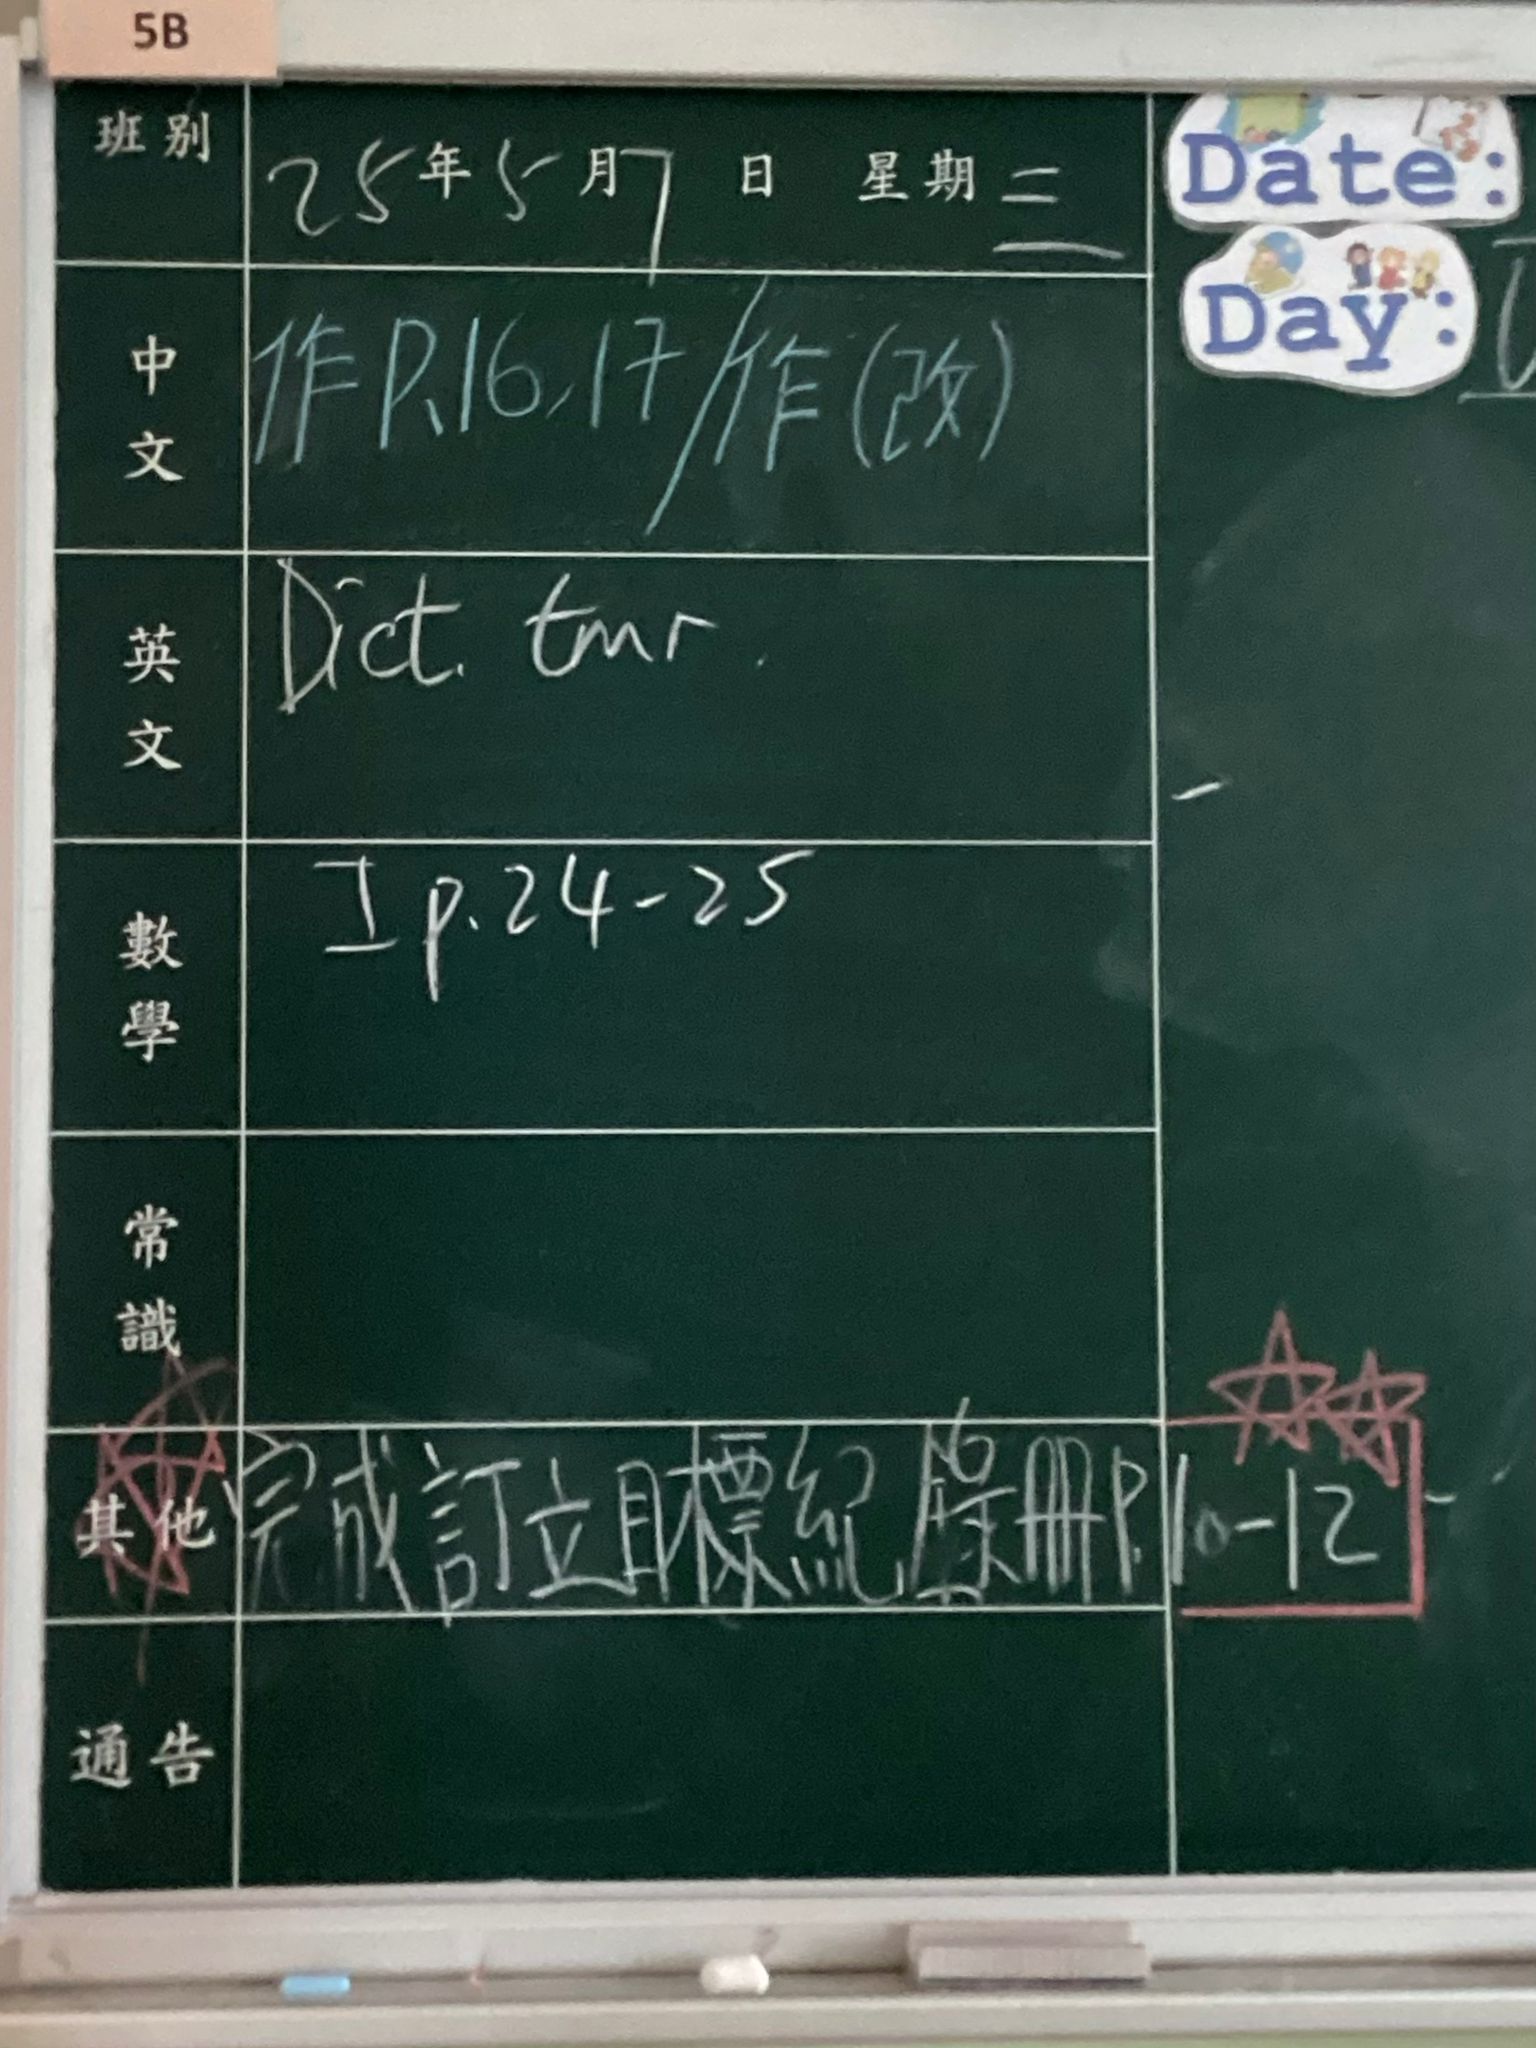 5B
班別 25年5月7日 星期三
Date:
Day:
中文 作P.16,17/作(改)
英文 Dict. tmr.
數學 I p.24-25
常識
其他 完成訂立目標紀錄冊P.10-12
通告